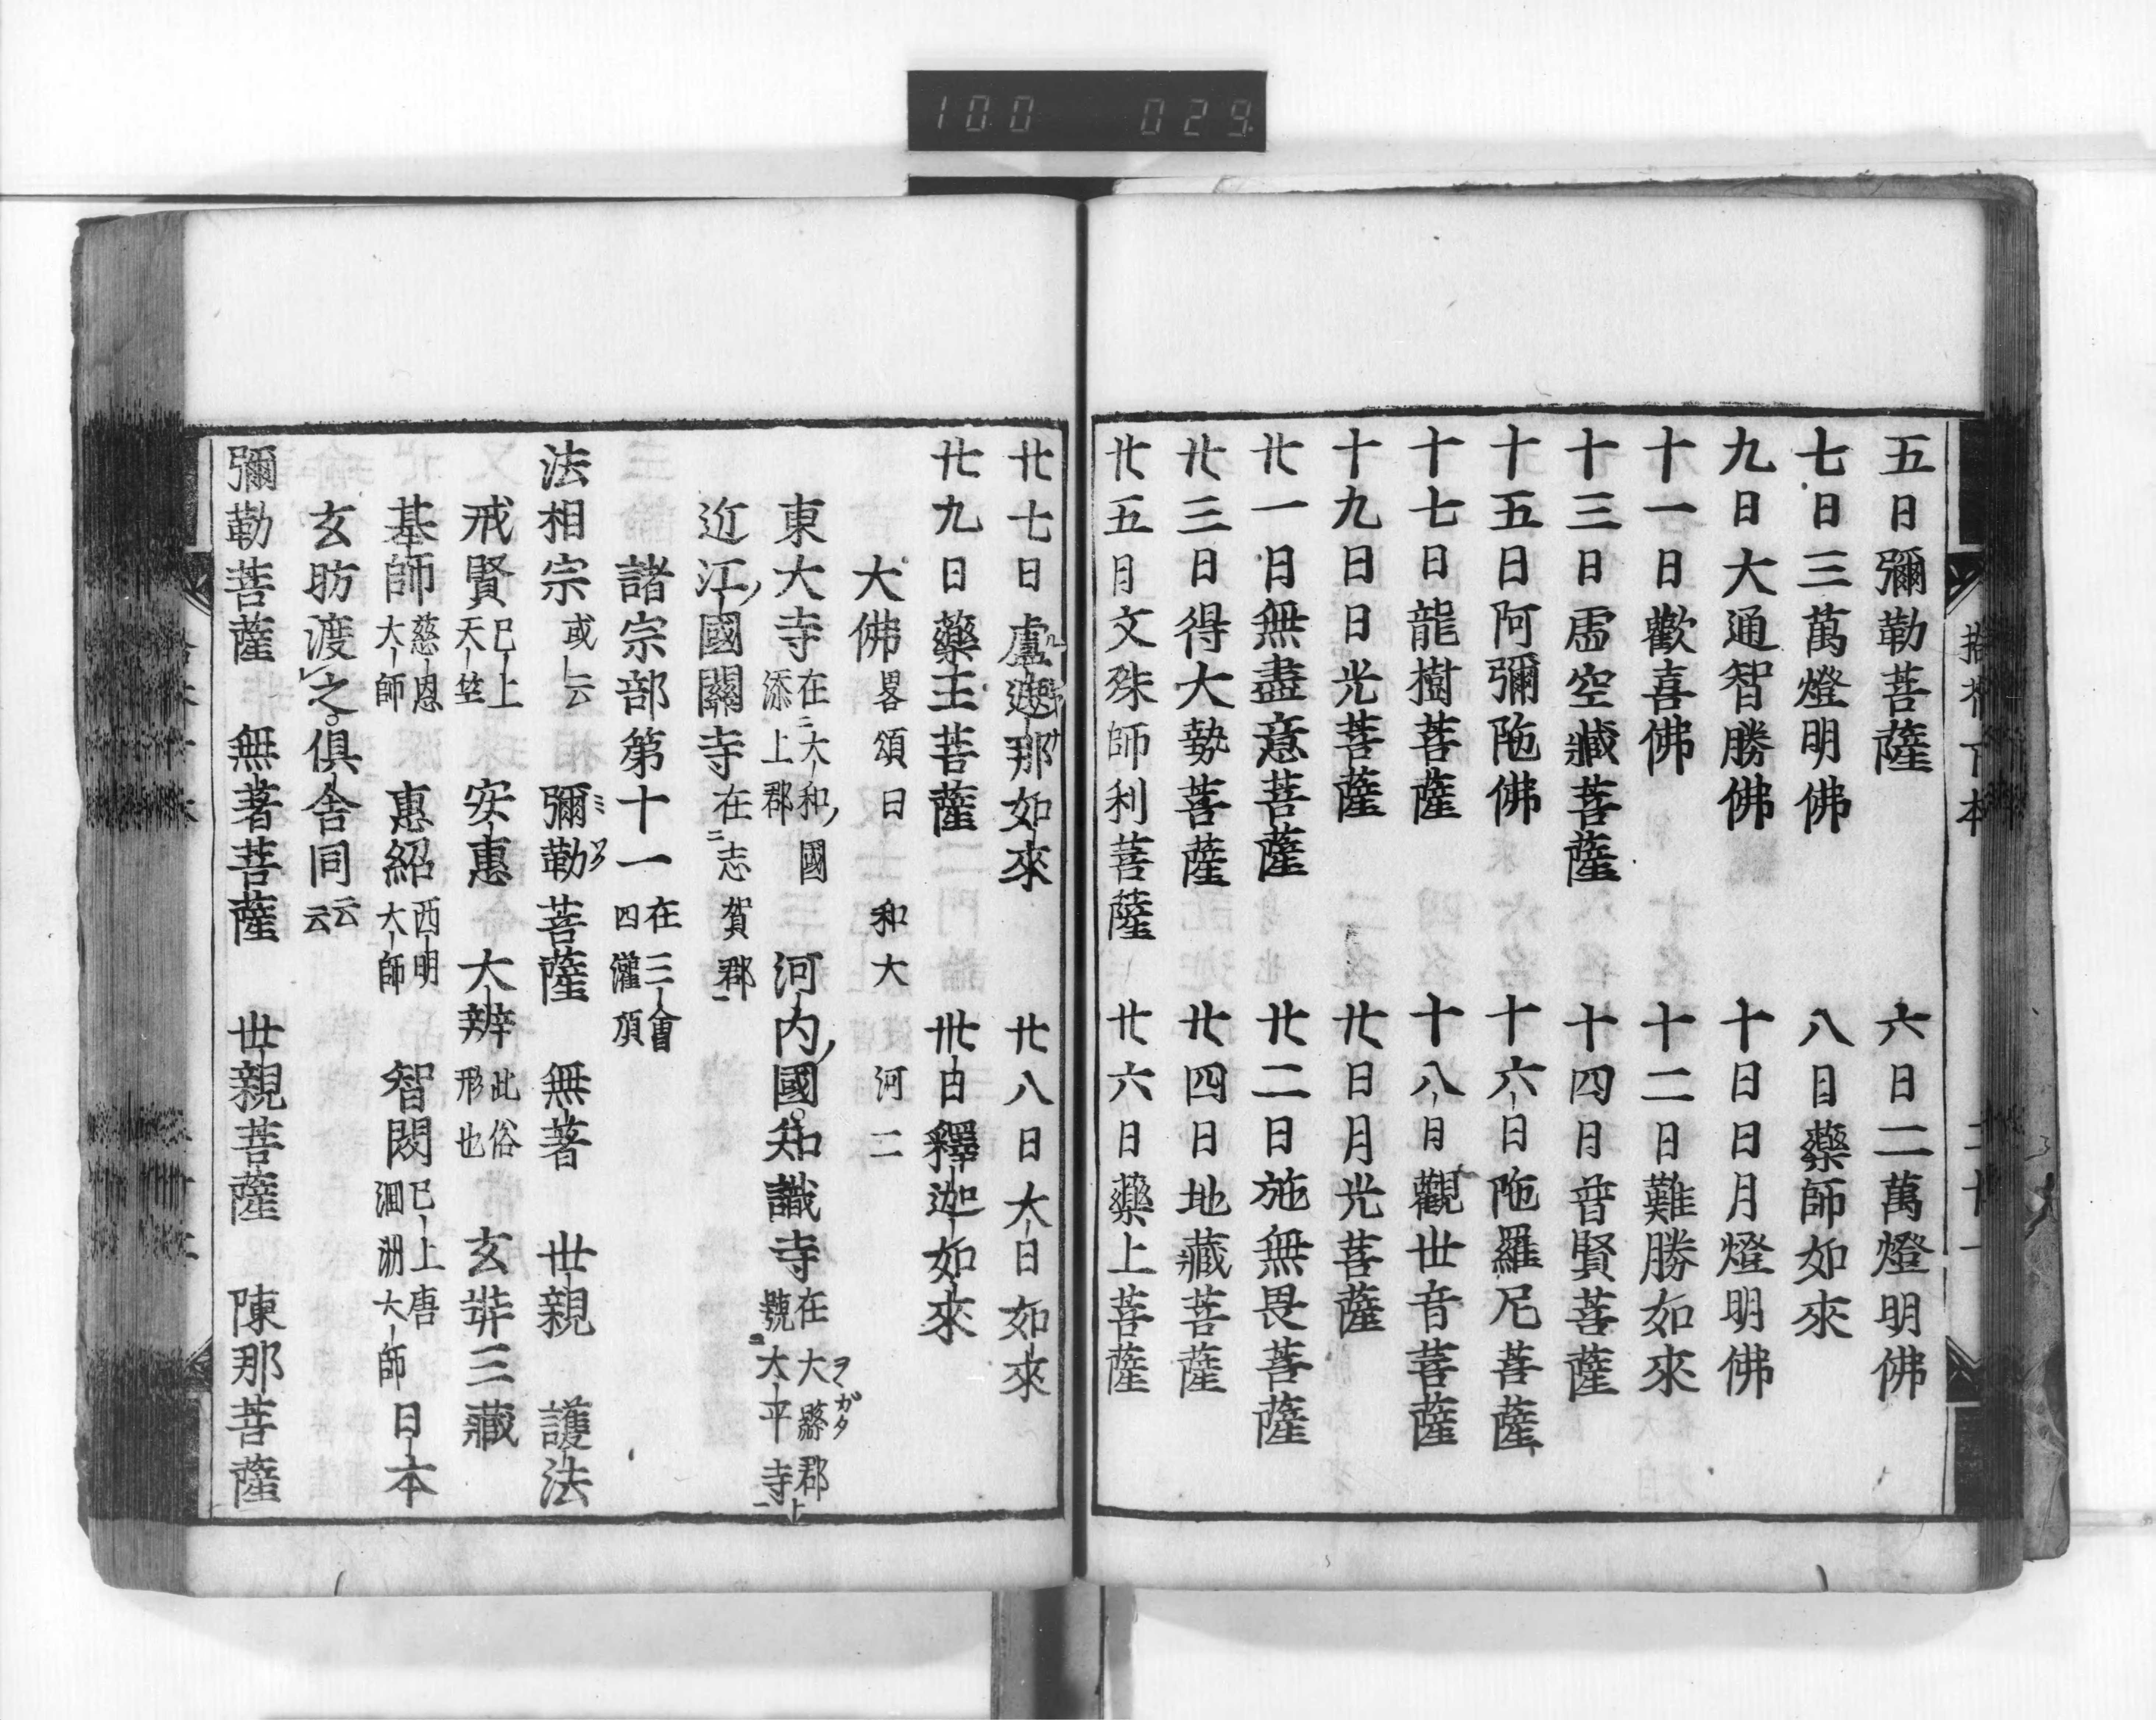 100 029
五日彌勒菩薩 六日二萬燈明佛
七日三萬燈明佛 八日藥師如來
九日大通智勝佛 十日日月燈明佛
十一日歡喜佛 十二日難勝如來
十三日虛空藏菩薩 十四日普賢菩薩
十五日阿彌陁佛 十六日陁羅尼菩薩
十七日龍樹菩薩 十八日觀世音菩薩
十九日日光菩薩 廿日月光菩薩
廿一日無盡意菩薩 廿二日施無畏菩薩
廿三日得大勢菩薩 廿四日地藏菩薩
廿五日文殊師利菩薩 廿六日藥上菩薩
廿七日盧遮那如來 廿八日大日如來
廿九日藥王菩薩 卅日釋迦如來
大佛畧頌曰 和大 河二
東大寺在二大和國添上郡 河内國知識寺在大縣郡上號二太平寺一
近江國關寺在二志賀郡一
諸宗部第十一在三會四灌頂
法相宗或云 彌勒菩薩 無著 世親 護法
戒賢已上天竺 安惠 大辨此俗形也 玄弉三藏
基師慈恩大師 惠紹西明大師 智閎已上唐淄洲大師 日本
玄昉渡之俱舍同云云
彌勒菩薩 無著菩薩 世親菩薩 陳那菩薩